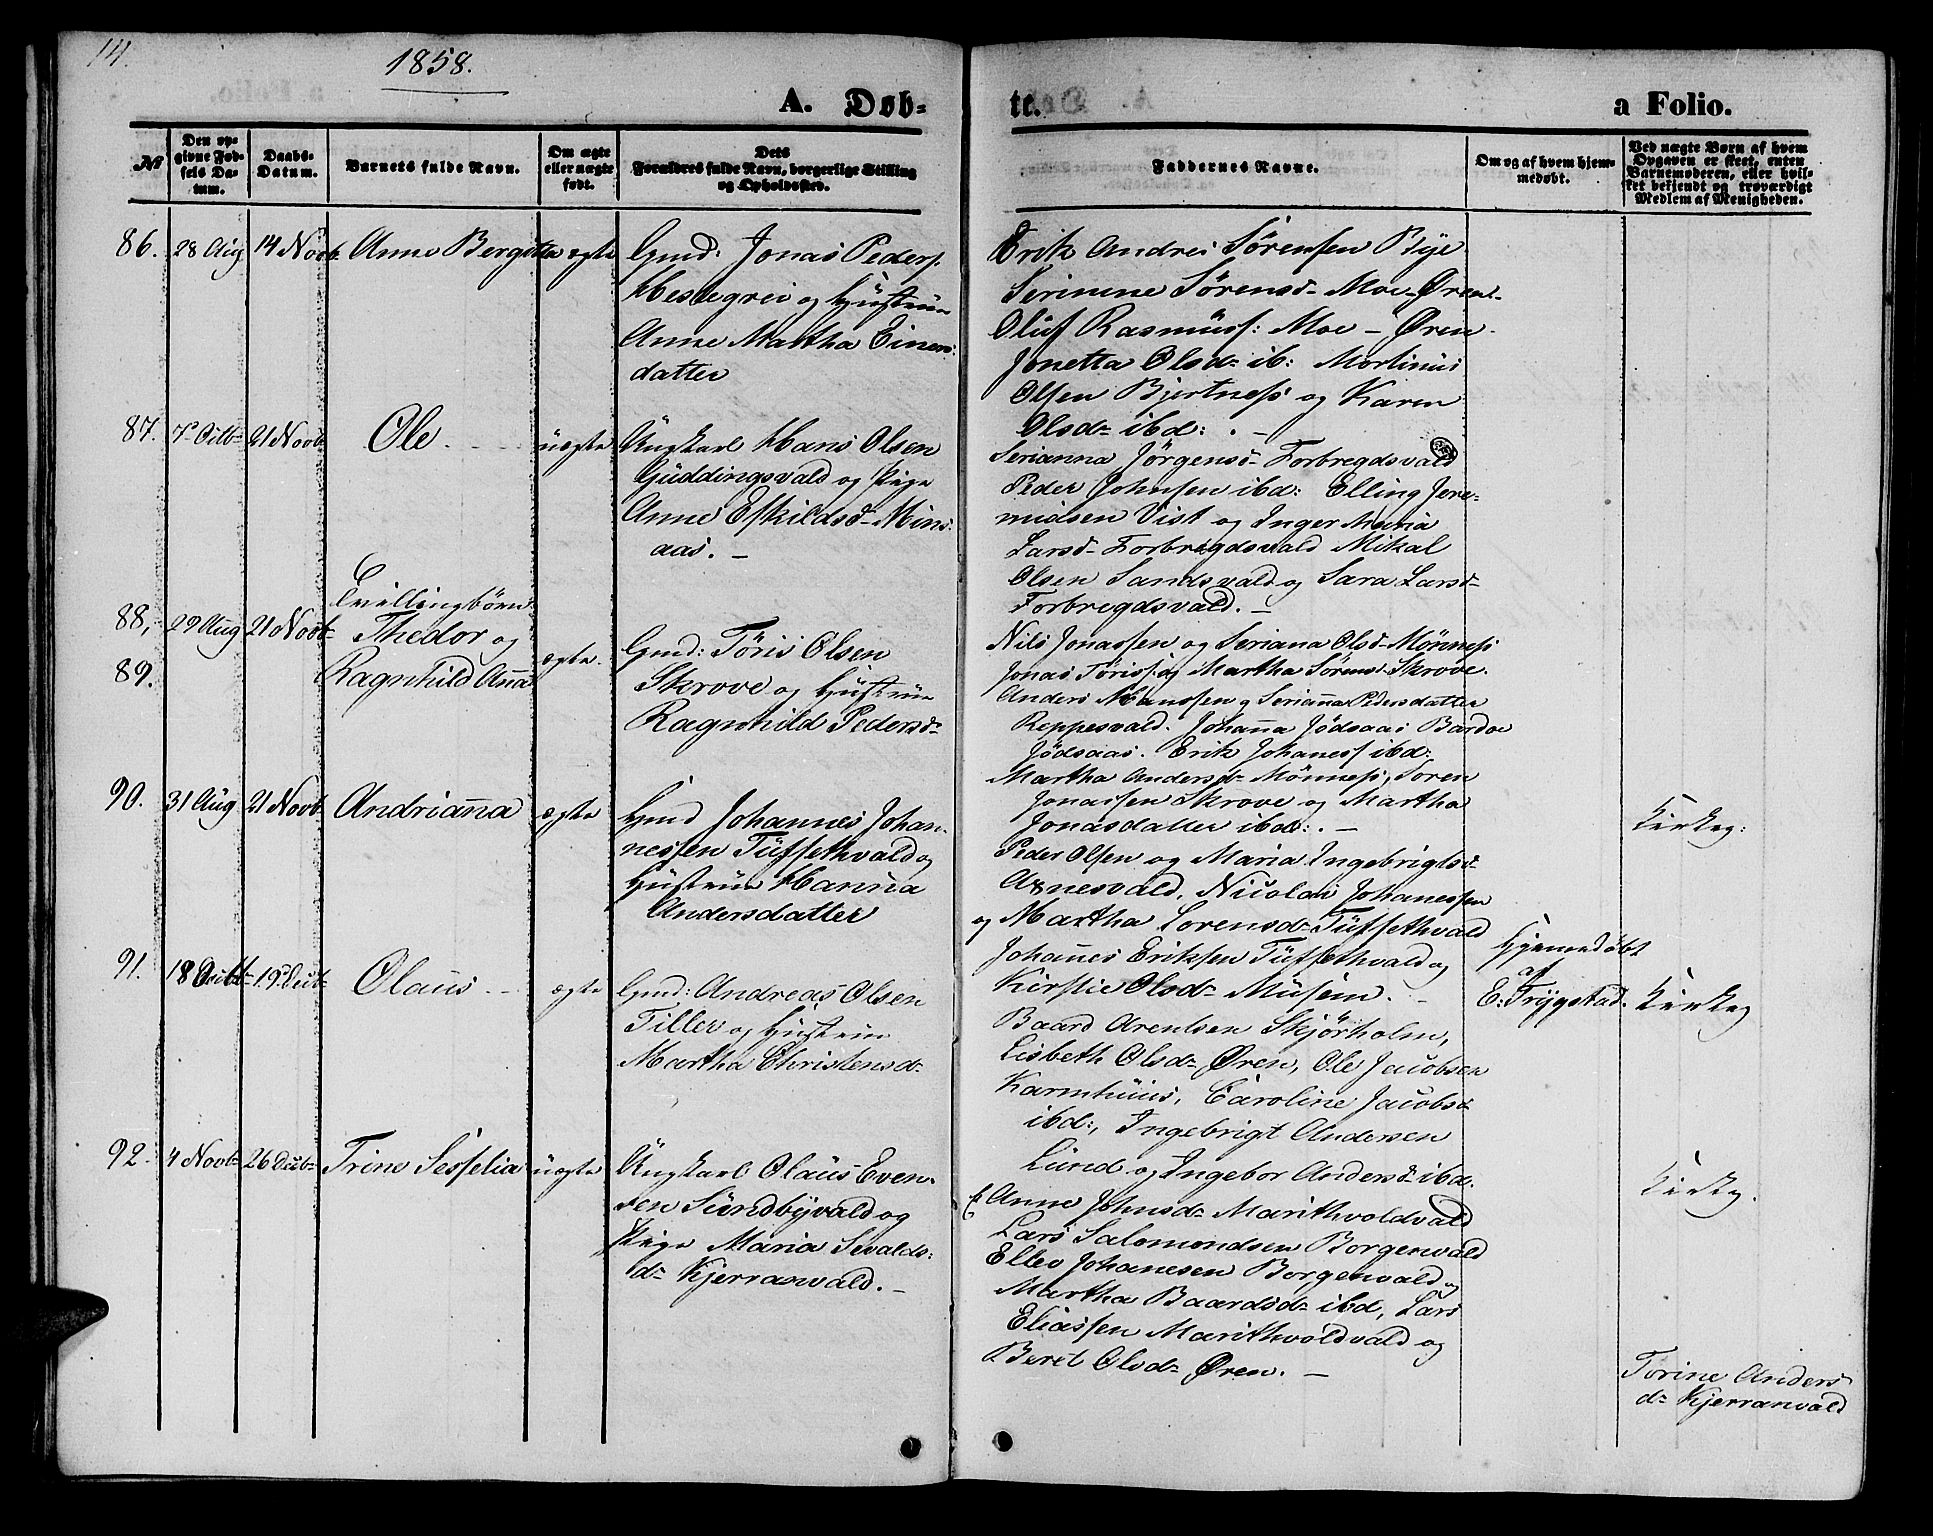 14.
1858.
A. Døb-
te.
a Folio.
No
Den op-
givne Fød-
sels Da-
tum.
Daabs-
Datum.
Barnets fulde Navn.
Om ægte
eller uægte
født.
Dets
Forældres fulde Navn, borgerlige Stilling
og Opholdssted.
Faddernes Navne.
Om og af hvem hjem-
medøbt.
Ved uægte Børn af hvem
Opgaven er skeet, enten
Barnemoderen, eller hvil-
ket bekjendt og troværdigt
Medlem af Menigheden.
86. 28 Aug 14 Novb Anne Bergitta ægte Gmd: Jonas Peders.
Hestegrei og Hustrue
Anne Martha Einers:
datter
Erik Andrei Sörensen Bye
Serinine Sörensd- Moe-Øren-
Oluf Rasmuss: Moe - Øren.
Jonetta Olsd- ib: Mortinus
Olsen Bjertness og Karen
Olsd- ibd: . -
87. 7d Octb- 21 Novb Ole uægte Ungkarl Hans Olsen
Guddingsvald og Pige
Anne Eskildsd- Mins-
aas. -
Serianna Jörgensd- Forbregdsvald
Peder Johnsen ibd: Elling Jere-
miasen Vist og Inger Maria
Larsd- Forbregdsvald Mikal
Olsen Sandsvald og Sara Larsd-
Forbregdsvald. -
88, 29 Aug 21 Novb- Tvillingbørn
Thedor og
89. Ragnhild Anna ægte. Gmd: Töris Olsen
Skrove og Hustrue
Ragnhild Pedersd-
Nils Jonassen og Seriana Olsd- Mönness
Jonas Töriss: og Martha Sörensd- Skrove.
Anders Hanssen og Serianna Pedersdatter
Reppesvald. Johanna Jödsaas Bardoe
Jödsaas. Erik Johaness ibd:
Martha Andersd- Mönness, Sören
Jonassen Skrove og Martha
Jonasdatter ibd:. -
90. 31 Aug 21 Novb Andrianna ægte Gmd Johannes Johan-
nessen Tussethvald og
Hustrue Hanna
Andersdatter
Peder Olsen og Maria Ingebrigtsd-
Arnesvald, Nicolai Johanessen
og Martha Lorensd- Tussethvald
Johannes Eriksen Tussethvald og
Kirstie Olsd- Musem. -
Kirkeg:
91. 18 Octbr- 19d Dect- Olaus ægte Gmd: Andreas Olsen
Tiller og Hustrue
Martha Christensd-
Baard Arentsen Skjörholm,
Lisbeth Olsd- Øren, Ole Jacobsen
Karmhuus, Caroline Jacobsd-
ibd:, Ingebrigt Andersen
Lund og Ingebor Andersd- ibd.
Hjemmedøbt
af
E. Trygstad.
Kirkeg
92. 4 Novb- 26 Decb- Trine Sesselia uægte Ungkarl Olaus Even-
sen Sundbyvald og
Pige Maria Sivalds-
d- Kjerranvald. -
Anne Johnsd- Marithvoldvald
Lars Salomondsen Borgenvald
Ellev Johanesen Borgenvald og
Martha Baardsd- ibd, Lars
Eliassen Marithvoldvald og
Beret Olsd- Øren. -
Kirkeg.
Torine Anders
d- Kjerranvald